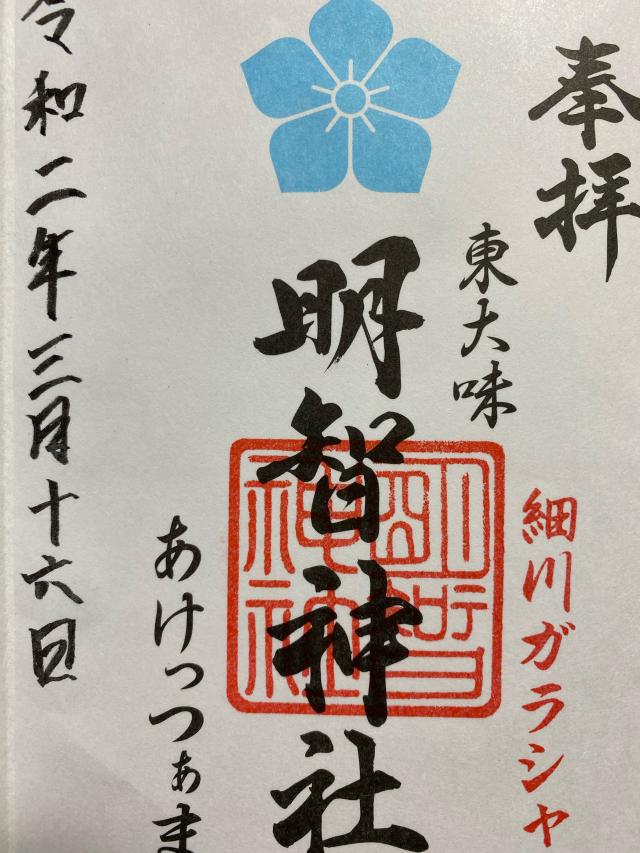 奉拝
東大味
細川ガラシャ
明智神社
明智神社
あけっつぁま
令和二年三月十六日